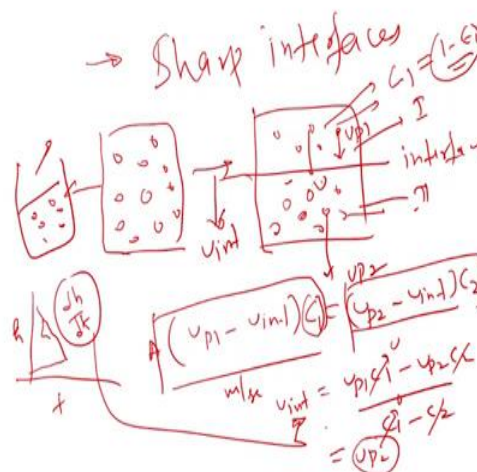 → Sharp interfaces
C1 = (1-
UP1
I
II
Uint
UP2
h
dh
t
A (UP1 - Uint) C1 = (UP2 - Uint) C2
m/sec
Uint = UP1 C1 - UP2 C2
C1 - C2
= UP2